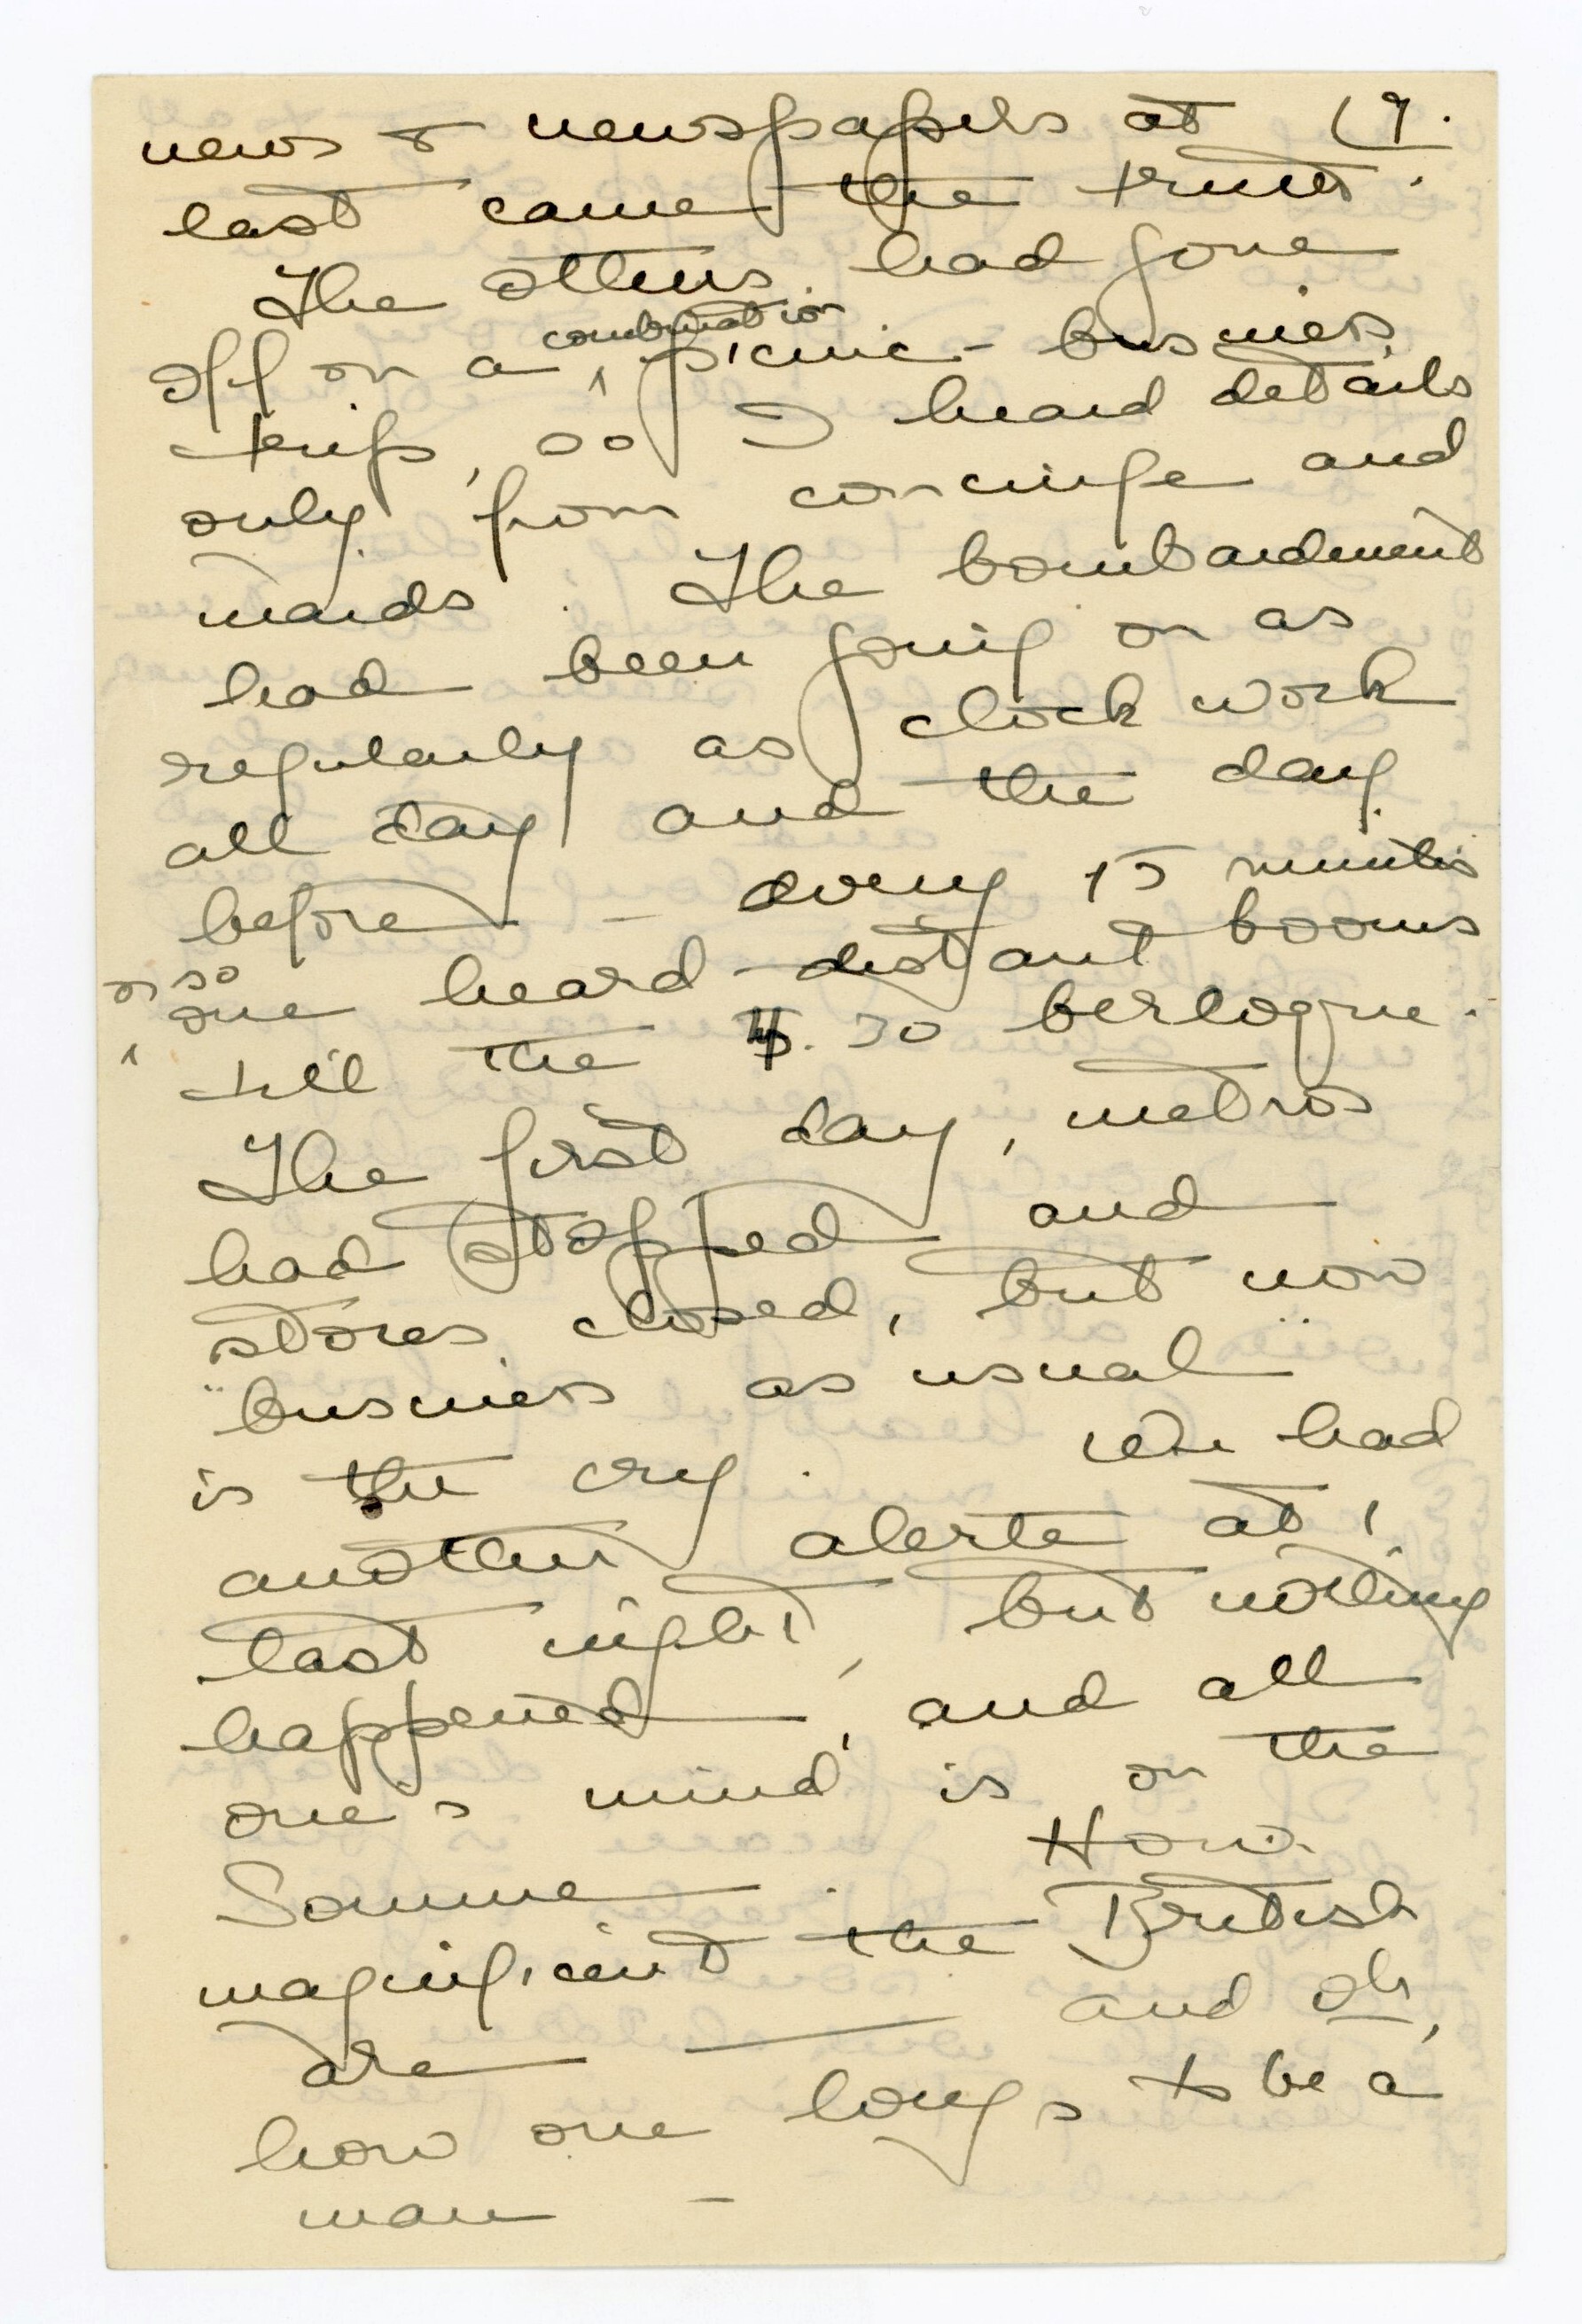 news & newspapers at (9.
last came the truth.
The others had gone
off on a combination picnic - business
trip, so I heard details
only from concierge and
maids. The bombardment
had been going on as
regularly as clock work
all day and the day
before - every 15 minutes
or so one heard distant booms
till the 4.30 berloque.
The first day, metros
had stopped and
stores closed, but now
"business as usual"
is the cry. We had
another alerte at 1
last night, but nothing
happened, and all
one's mind is on the
Somme. How
magnificent the British
are — and oh,
how one longs to be a
man -